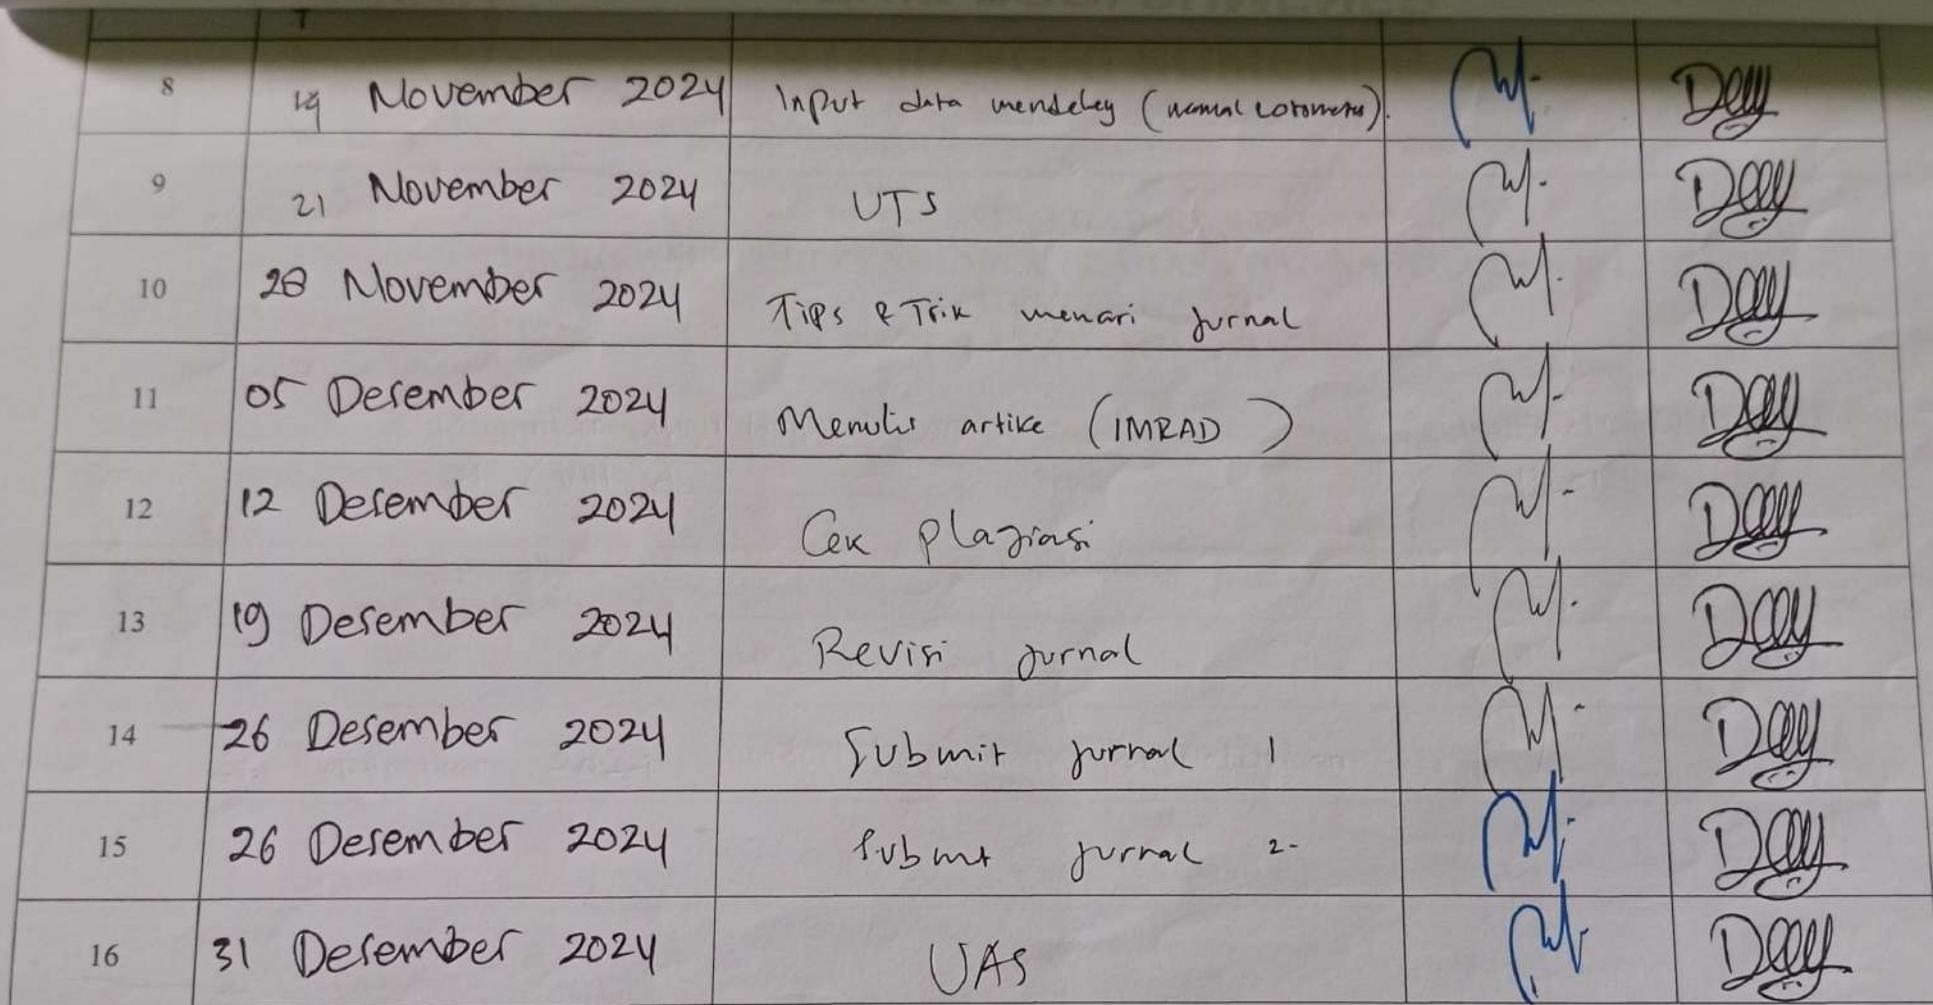 8 14 November 2024 Input data mendeley (manual
9 21 November 2024 UTS
10 28 November 2024 Tips & Trik menari jurnal
11 05 Desember 2024 Menulis artike (IMRAD)
12 12 Desember 2024 Cek plagiasi
13 19 Desember 2024 Revisi jurnal
14 26 Desember 2024 Submit jurnal 1
15 26 Desember 2024 Submit jurnal 2-
16 31 Desember 2024 UAS